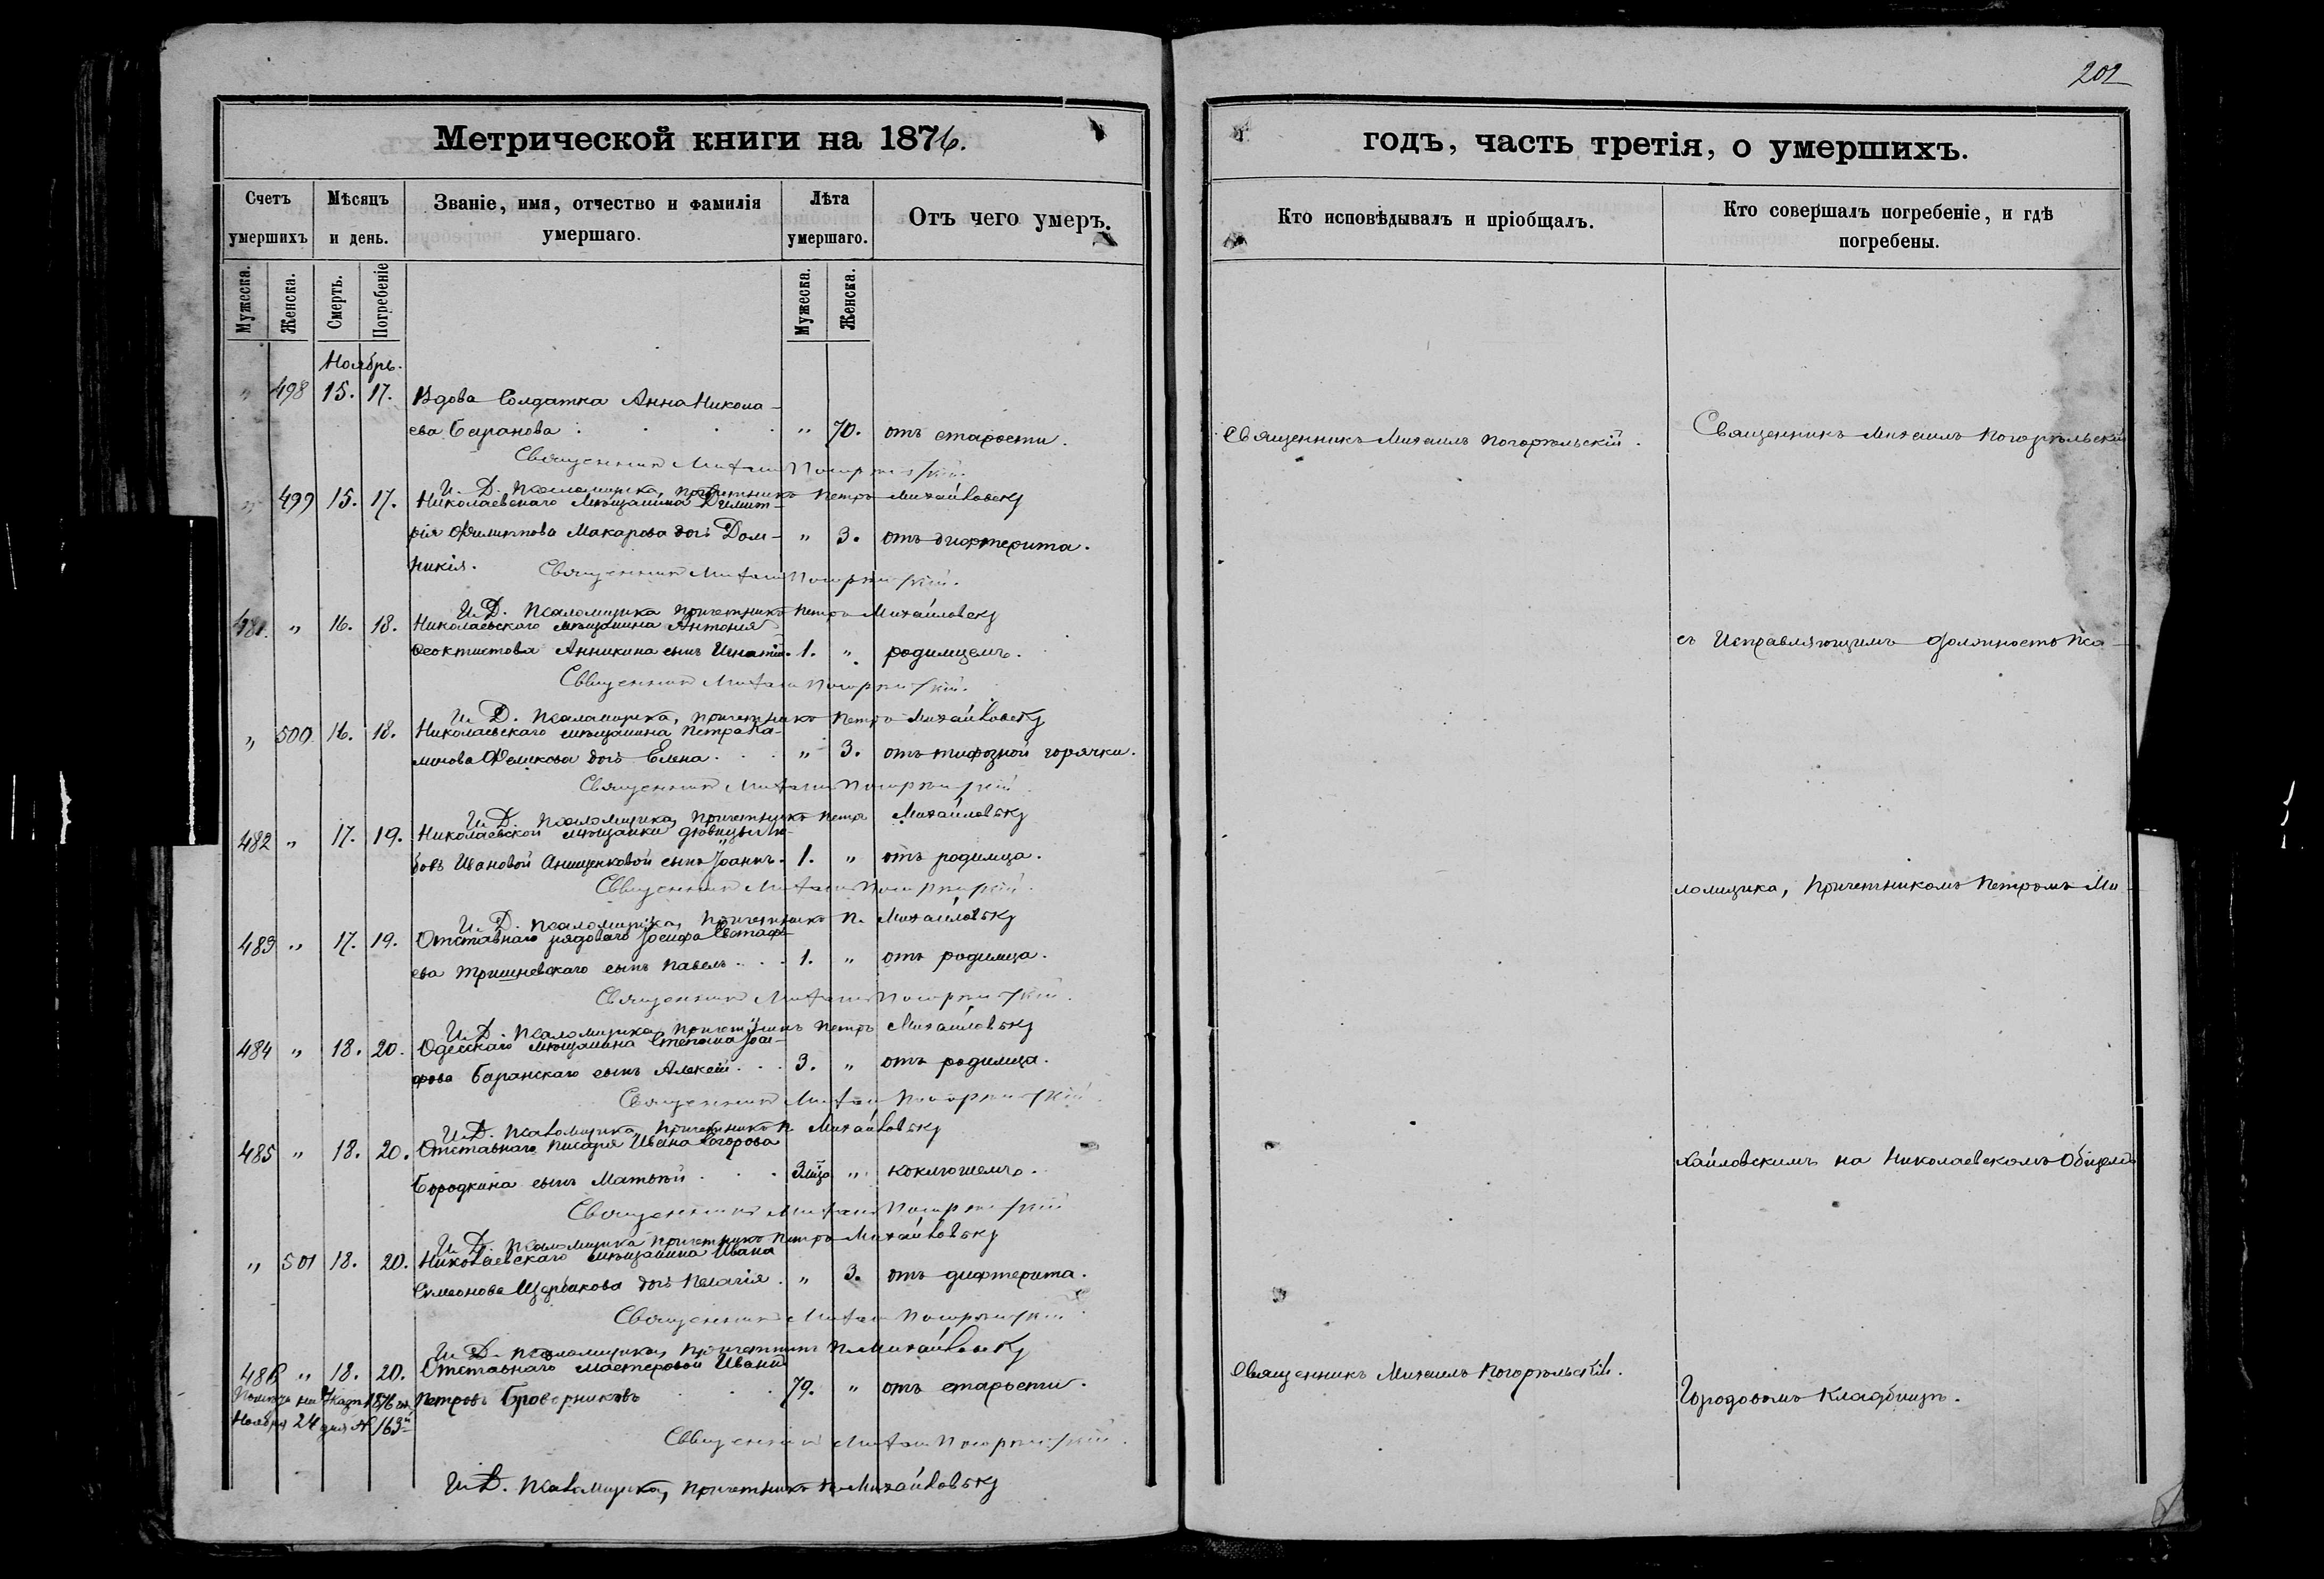 202
Метрической книги на 1876.
годъ, часть третія, о умершихъ.
Счетъ умершихъ
Мѣсяцъ и день.
Званіе, имя, отчество и фамилія умершаго.
Лѣта умершаго.
Отъ чего умеръ.
Кто исповѣдывалъ и пріобщалъ.
Кто совершалъ погребеніе, и гдѣ погребены.
Мужеска.
Женска.
Смерть.
Погребеніе
Мужеска.
Женска.
Ноябрь.
" 498 15. 17. Вдова Солдатка Анна Никола-
ева Баранова . . . . " 70. отъ старости. Священникъ Михаилъ Погорѣльскій. Священникъ Михаилъ Погорѣльскій
Священникъ Михаилъ Погорѣльскій.
И. Д. Псаломщика, Причетникъ Петръ Михайловскі
" 499 15. 17. Николаевскаго мѣщанина Димит-
рія Филиппова Макарова дочь Дом- " 3. отъ дифтерита.
никія.
Священникъ Михаилъ Погорѣльскій.
И. Д. Псаломщика Причетникъ Петръ Михайловскі
481. " 16. 18. Николаевскаго мѣщанина Антонія
Феоктистова Аникина сынъ Игнатій. 1. " родимцемъ. съ Исправляющимъ должность Пса-
Священникъ Михаилъ Погорѣльскій.
И. Д. Псаломщика, Причетникъ Петръ Михайловскі
" 500 16. 18. Николаевскаго мѣщанина Петра
дочь Елена . . . " 3. отъ тифозной горячки.
Священникъ Михаилъ Погорѣльскій
И. Д. Псаломщика, Причетникъ Петръ Михайловскі
482 " 17. 19. Николаевской мѣщанки дѣвицы Лю-
бовъ Ивановой Анищенковой сынъ Іоаннъ. 1. " отъ родимца.
Священникъ Михаилъ Погорѣльскій. ломщика, Причетникомъ Петромъ Ми-
И. Д. Псаломщика, Причетникъ П. Михайловскі
483 " 17. 19. Отставнаго рядоваго Іосифа Евстафі-
ева Тришневскаго сынъ Павелъ . . . 1. " отъ родимца.
Священникъ Михаилъ Погорѣльскій.
И. Д. Псаломщика, Причетникъ Петръ Михайловскі
484 " 18. 20. Одесскаго мѣщанина Стефана
Баранскаго сынъ Алексій . . . 3. " отъ родимца.
Священникъ Михаилъ Погорѣльскій.
И. Д. Псаломщика, Причетникъ П Михайловскі
485 " 18. 20. Отставнаго писаря Ивана Егорова
Бородкина сынъ Матѳѣй . . . 3 мца " коклюшемъ. хайловскимъ на Николаевскомъ Общемъ
Священникъ Михаилъ Погорѣльскій
И. Д. Псаломщика Причетникъ Петръ Михайловскі
" 501 18. 20. Николаевскаго мѣщанина Ивана
Симеонова Щербакова дочь Пелагія. " 3. отъ дифтерита.
Священникъ Михаилъ Погорѣльскій.
И. Д. Псаломщика, Причетникъ П. Михайловскі
486 " 18. 20. Отставнаго мастеровой Иванъ Священникъ Михаилъ Погорѣльскій.
Петровъ Броверниковъ . . . 79. " отъ старости. Городовомъ Кладбищѣ.
Ноября 24 дня № 163
Священникъ Михаилъ Погорѣльскій.
И. Д. Псаломщика, Причетникъ П. Михайловскі